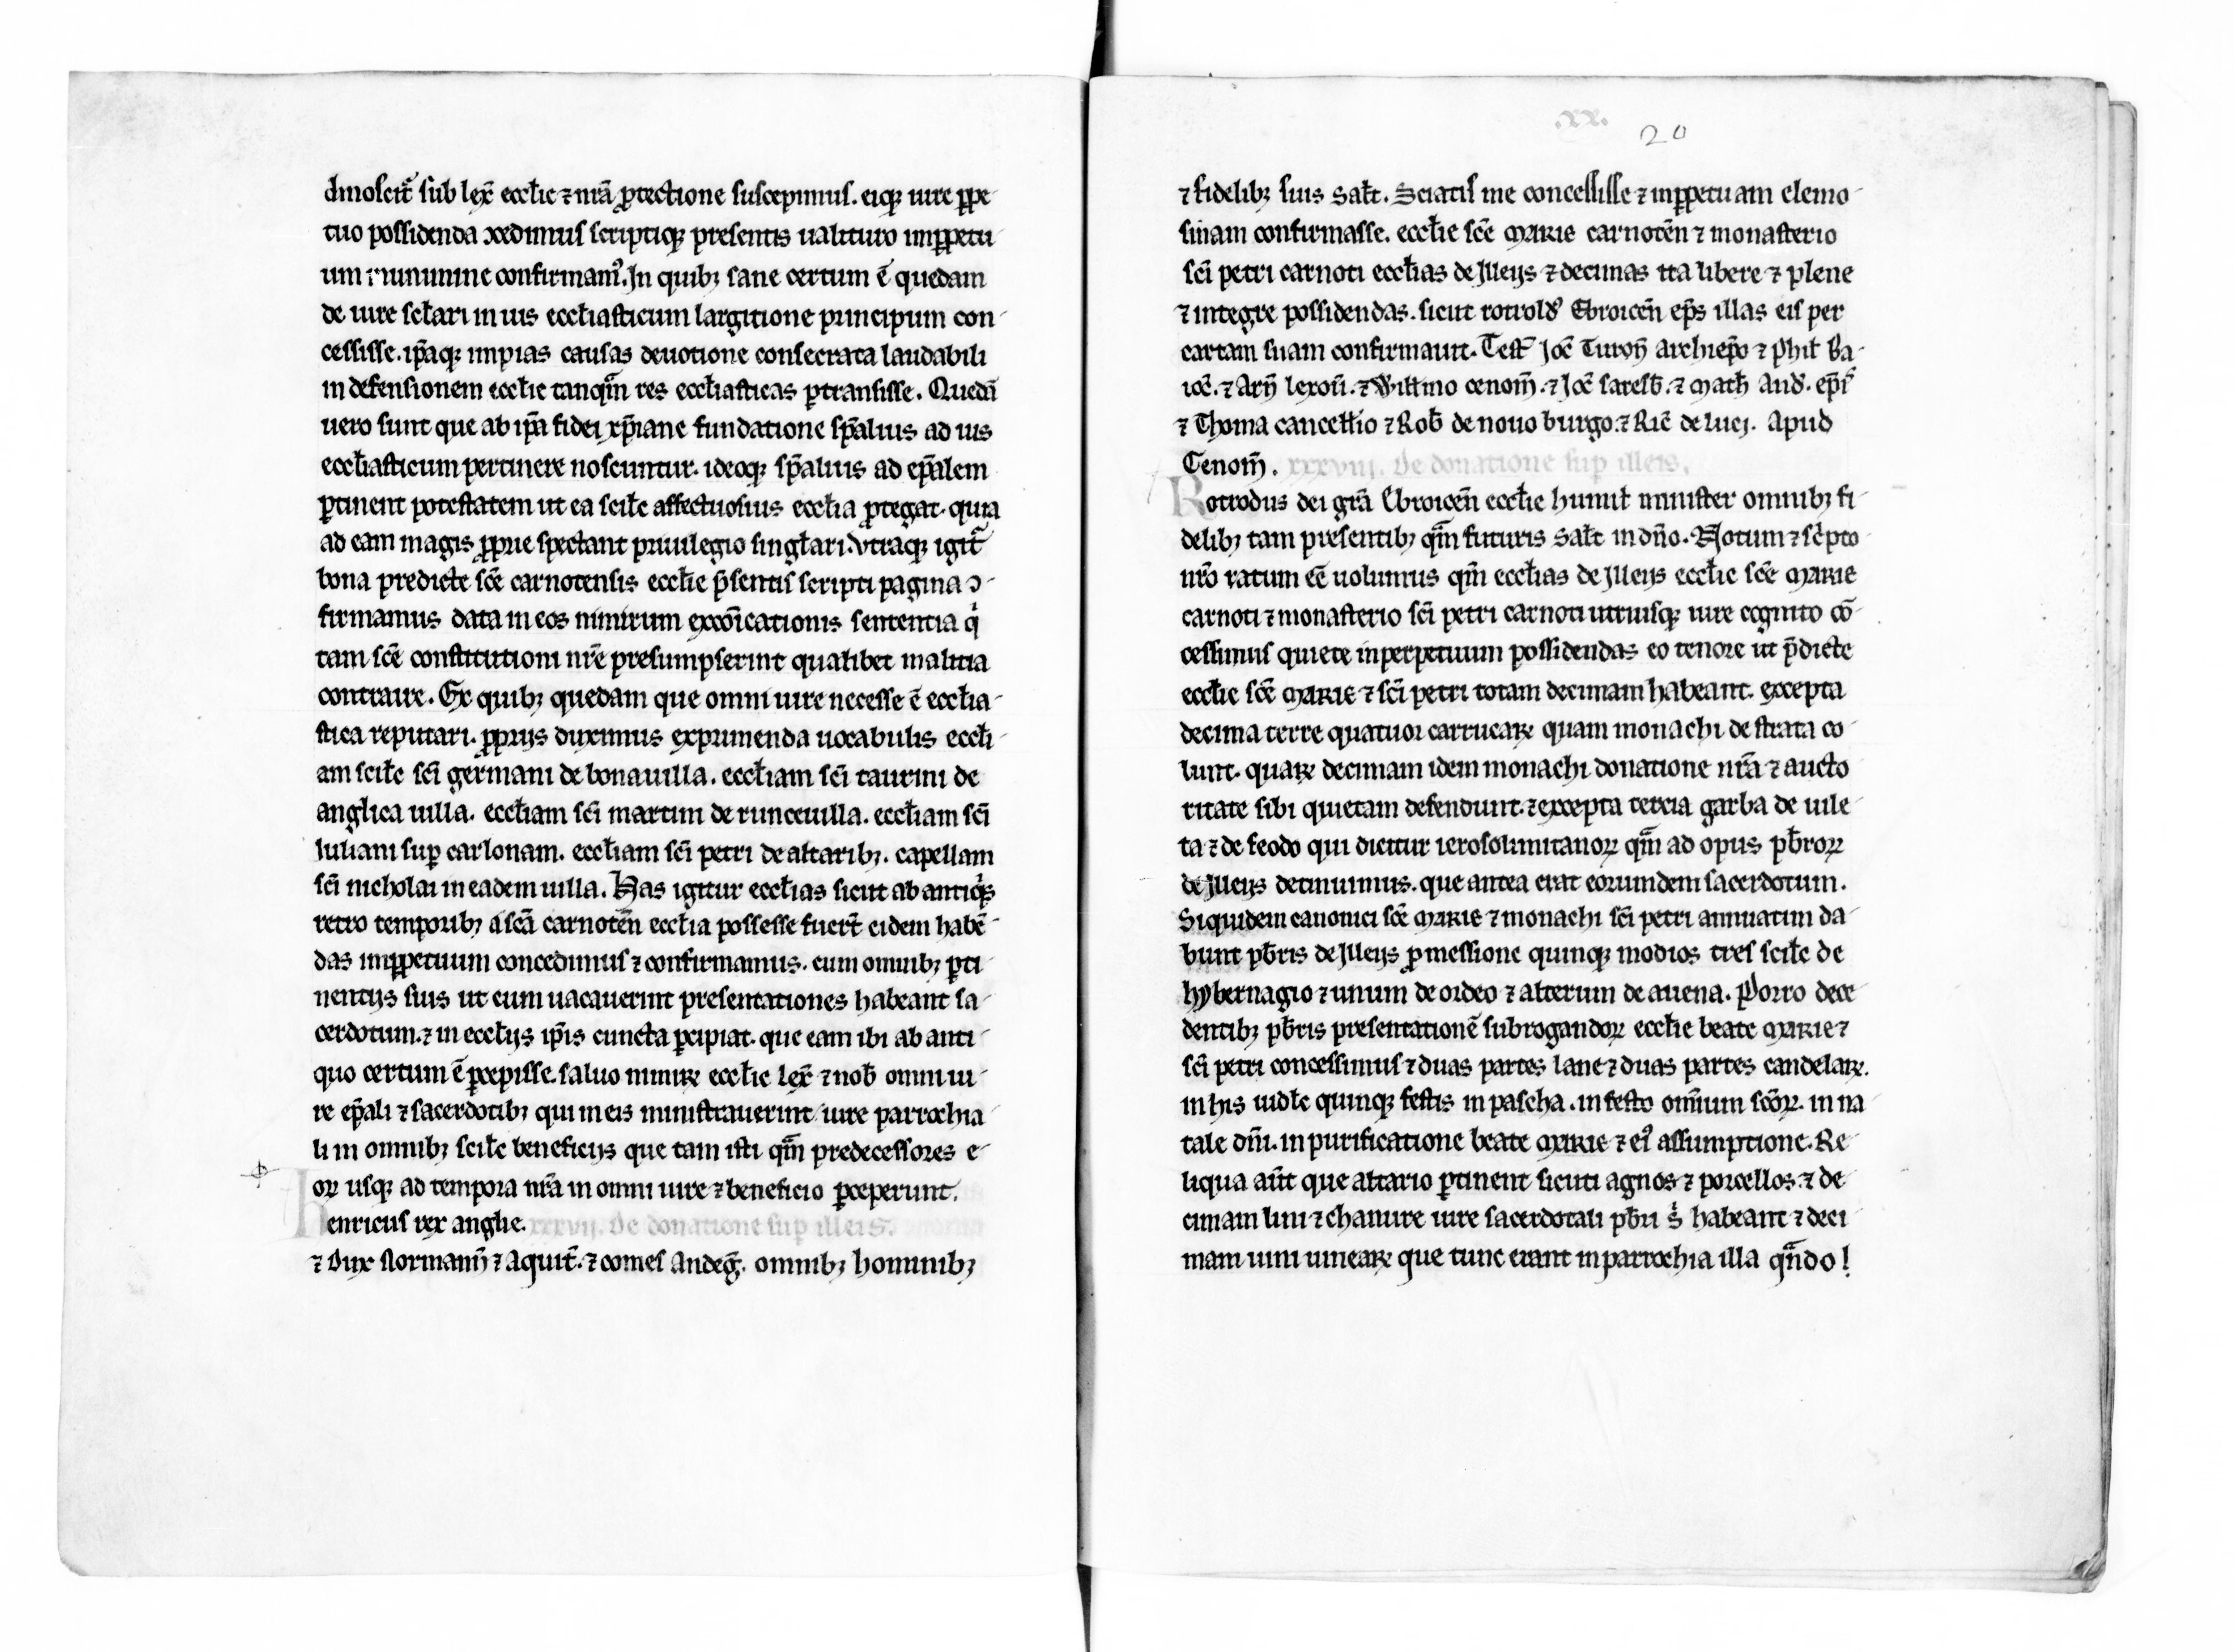 dinoscit᷑ sub lex̄ eccl̄ie ⁊ nr̄a ꝓtectione suscepimus. eiqꝫ iure ꝑpe-
tuo possidenda ↄcedimus scriptiqꝫ presentis ualituro inꝑpetu-
um munimine confirmamꝰ. In quibꝫ sane certum ē quedam
de iure scl̄ari in ius eccl̄iasticum largitione principum con-
cessisse. ip̄aqꝫ in pias causas deuotione consecrata laudabili
in defensionem eccl̄ie tanqͣm res eccl̄iasticas ꝑtransisse. Quedā
uero sunt que ab ip̄a fidei xp̄iane fundatione sp̄alius ad ius
eccl̄iasticum pertinere noscuntur. ideoqꝫ sp̄alius ad ep̄alem
ꝑtinent potestatem ut ea scil̄c affectuosius eccl̄ia ꝓtegat. quia
ad eam magis ꝓprie spectant priuilegio singl̄ari. Vtraqꝫ igit᷑
bona predicte sc̄e carnotensis eccl̄ie p̄sentis scripti pagina ↄ-
firmamus data in eos nimirum exↄ̄icationis sententia qͥ
tam sc̄e constitutioni nr̄e presumpserint qualibet malitia
contraire. Ex quibꝫ quedam que omni iure necesse ē eccl̄ia-
stica reputari. ꝓprijs duximus exprimenda uocabulis eccl̄i-
am scil̄c sc̄i germani de bonauilla. eccl̄iam sc̄i taurini de
anglica uilla. eccl̄iam sc̄i martini de runceuilla. eccl̄iam sc̄i
Iuliani suꝑ carlonam. eccl̄iam sc̄i petri de altaribꝫ. capellam
sc̄i nicholai in eadem uilla. Has igitur eccl̄ias sicut ab antiqͥs
retro temporibꝫ a sc̄a carnotēn eccl̄ia possesse fuer̄t eidem habē-
das inꝑpetuum concedimus ⁊ confirmamus. cum omnibꝫ ꝑti-
nentijs suis ut cum uacauerint presentationes habeant sa-
cerdotum. ⁊ in eccl̄ijs ip̄is cuncta ꝑcipiat. que eam ibi ab anti-
quo certum ē ꝑcepisse. saluo in iure eccl̄ie lex̄ ⁊ nob̄ omni iu-
re ep̄ali ⁊ sacerdotibꝫ qui in eis ministrauerint iure parrochia-
li in omnibꝫ scil̄c beneficijs que tam isti qͣm predecessores e-
oꝝ usqꝫ ad tempora nr̄a in omni iure ⁊ beneficio ꝑceperunt.
Henricus rex anglie. xxxvii. De donatione suꝑ illeis.
⁊ Dux Normann̄ ⁊ Aquit̄. ⁊ comes Andeḡ. omnibꝫ hominibꝫ
.xx.
20
⁊ fidelibꝫ suis sal̄t. Sciatis me concessisse ⁊ inꝑpetuam elemo-
sinam confirmasse. eccl̄ie sc̄e MARIE carnotēn ⁊ monasterio
sc̄i petri carnoti eccl̄ias de Illeijs ⁊ decimas ita libere ⁊ plene
⁊ integre possidendas. sicut rotroldꝰ Ebroicēn ep̄s illas eis per
cartam suam confirmauit. Test̄ Joc̄ Turon̄ archiep̄o ⁊ Phil̄ Ba-
ioc̄. ⁊ Arn̄ lexoū. ⁊ Will̄mo cenom̄. ⁊ Joc̄ saresb̄. ⁊ Math̄ And̄. ep̄is
⁊ Thoma cancell̄io ⁊ Rob̄ de nouo burgo. ⁊ Ric̄ de luci. Apud
Cenom̄. xxxviii. De donatione suꝑ illeis.
Rotrodus dei gr̄a Ebroicēn eccl̄ie humil̄ minister omnibꝫ fi-
delibꝫ tam presentibꝫ qͣm futuris sal̄t in dn̄o. Notum ⁊ scͥpto
nr̄o ratum eē uolumus qm̄ eccl̄ias de Illeijs eccl̄ie sc̄e MARIE
carnoti ⁊ monasterio sc̄i petri carnoti utriusqꝫ iure cognito cō-
cessimus quiete in perpetuum possidendas eo tenore ut p̄dicte
eccl̄ie sc̄e MARIE ⁊ sc̄i petri totam decimam habeant. excepta
decima terre quatuor carrucaꝝ quam monachi de strata co-
lunt. quaꝝ decimam idem monachi donatione nr̄a ⁊ aucto-
ritate sibi quietam defendunt. ⁊ excepta tercia garba de uile-
ta ⁊ de feodo qui dicitur ierosolimitanoꝝ qͣm ad opus pb̄roꝝ
de Illeijs detinuimus. que antea erat eorumdem sacerdotum.
Siquidem canonici sc̄e MARIE ⁊ monachi sc̄i petri annuatim da-
bunt pb̄ris de Illeijs ꝓ messione quinqꝫ modios tres scil̄c de
hybernagio ⁊ unum de ordeo ⁊ alterum de auena. Porro dece-
dentibꝫ pb̄ris presentationē subrogandoꝝ eccl̄ie beate MARIE ⁊
sc̄i petri concessimus ⁊ duas partes lane ⁊ duas partes candelaꝝ.
in his uidl̄c quinqꝫ festis in pascha. in festo omnium sc̄oꝝ. in na-
tale dn̄i. in purificatione beate MARIE ⁊ eiꝰ assumptione. Re-
liqua aūt que altario ꝑtinent sicuti agnos ⁊ porcellos. ⁊ de-
cimam lini ⁊ chanure iure sacerdotali pb̄ri sͥ habeant ⁊ deci-
mam uini uineaꝝ que tunc erant in parrochia illa qͣndo!